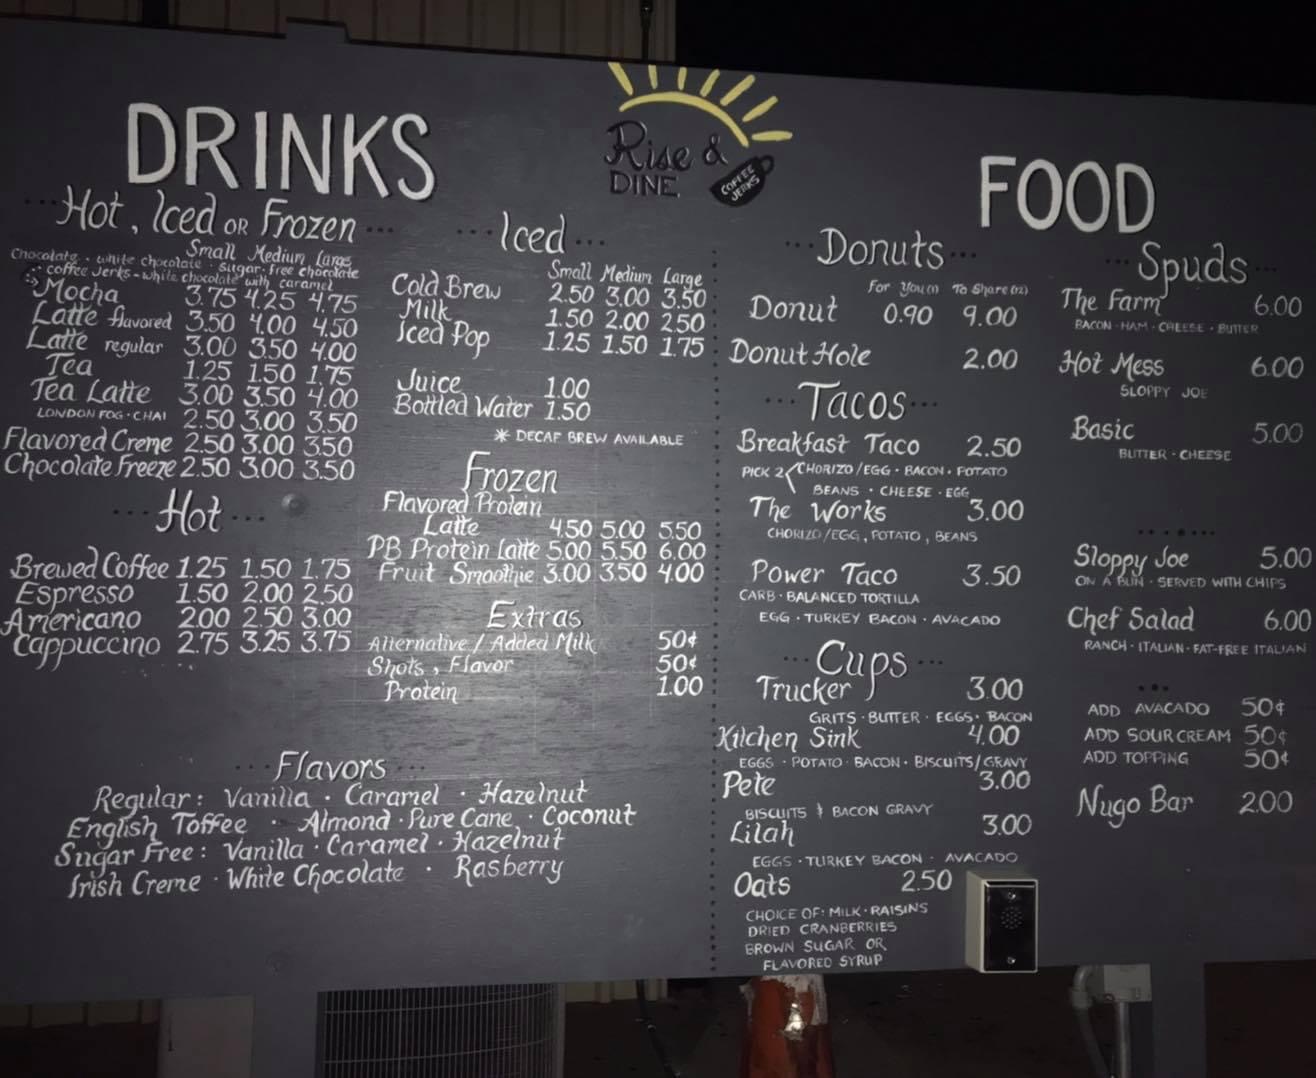 Rise &
DINE
COFFEE
JERKS
DRINKS
Hot, Iced OR Frozen
Small Medium Large
Chocolate · white chocolate · sugar-free chocolate
coffee Jerks - white chocolate with caramel
Mocha 3.75 4.25 4.75
Latte flavored 3.50 4.00 4.50
Latte regular 3.00 3.50 4.00
Tea 1.25 1.50 1.75
Tea Latte 3.00 3.50 4.00
LONDON FOG · CHAI 2.50 3.00 3.50
Flavored Creme 2.50 3.00 3.50
Chocolate Freeze 2.50 3.00 3.50
Hot
Brewed Coffee 1.25 1.50 1.75
Espresso 1.50 2.00 2.50
Americano 2.00 2.50 3.00
Cappuccino 2.75 3.25 3.75
Iced
Small Medium Large
Cold Brew 2.50 3.00 3.50
Milk 1.50 2.00 2.50
Iced Pop 1.25 1.50 1.75
Juice 1.00
Bottled Water 1.50
* DECAF BREW AVAILABLE
Frozen
Flavored Protein
Latte 4.50 5.00 5.50
PB Protein Latte 5.00 5.50 6.00
Fruit Smoothie 3.00 3.50 4.00
Extras
Alternative / Added Milk 50¢
Shots, Flavor 50¢
Protein 1.00
Flavors
Regular: Vanilla · Caramel · Hazelnut
English Toffee · Almond · Pure Cane · Coconut
Sugar Free: Vanilla · Caramel · Hazelnut
Irish Creme · White Chocolate · Rasberry
FOOD
Donuts
For You (1) To Share (12)
Donut 0.90 9.00
Donut Hole 2.00
Tacos
Breakfast Taco 2.50
PICK 2 CHORIZO/EGG · BACON · POTATO
BEANS · CHEESE · EGG
The Works 3.00
CHORIZO/EGG, POTATO, BEANS
Power Taco 3.50
CARB · BALANCED TORTILLA
EGG · TURKEY BACON · AVACADO
Cups
Trucker 3.00
GRITS · BUTTER · EGGS · BACON
Kitchen Sink 4.00
EGGS · POTATO · BACON · BISCUITS/GRAVY
Pete 3.00
BISCUITS & BACON GRAVY
Lilah 3.00
EGGS · TURKEY BACON · AVACADO
Oats 2.50
CHOICE OF: MILK · RAISINS
DRIED CRANBERRIES
BROWN SUGAR OR
FLAVORED SYRUP
Spuds
The Farm 6.00
BACON · HAM · CHEESE · BUTTER
Hot Mess 6.00
SLOPPY JOE
Basic 5.00
BUTTER · CHEESE
Sloppy Joe 5.00
ON A BUN · SERVED WITH CHIPS
Chef Salad 6.00
RANCH · ITALIAN · FAT-FREE ITALIAN
ADD AVACADO 50¢
ADD SOUR CREAM 50¢
ADD TOPPING 50¢
Nugo Bar 2.00